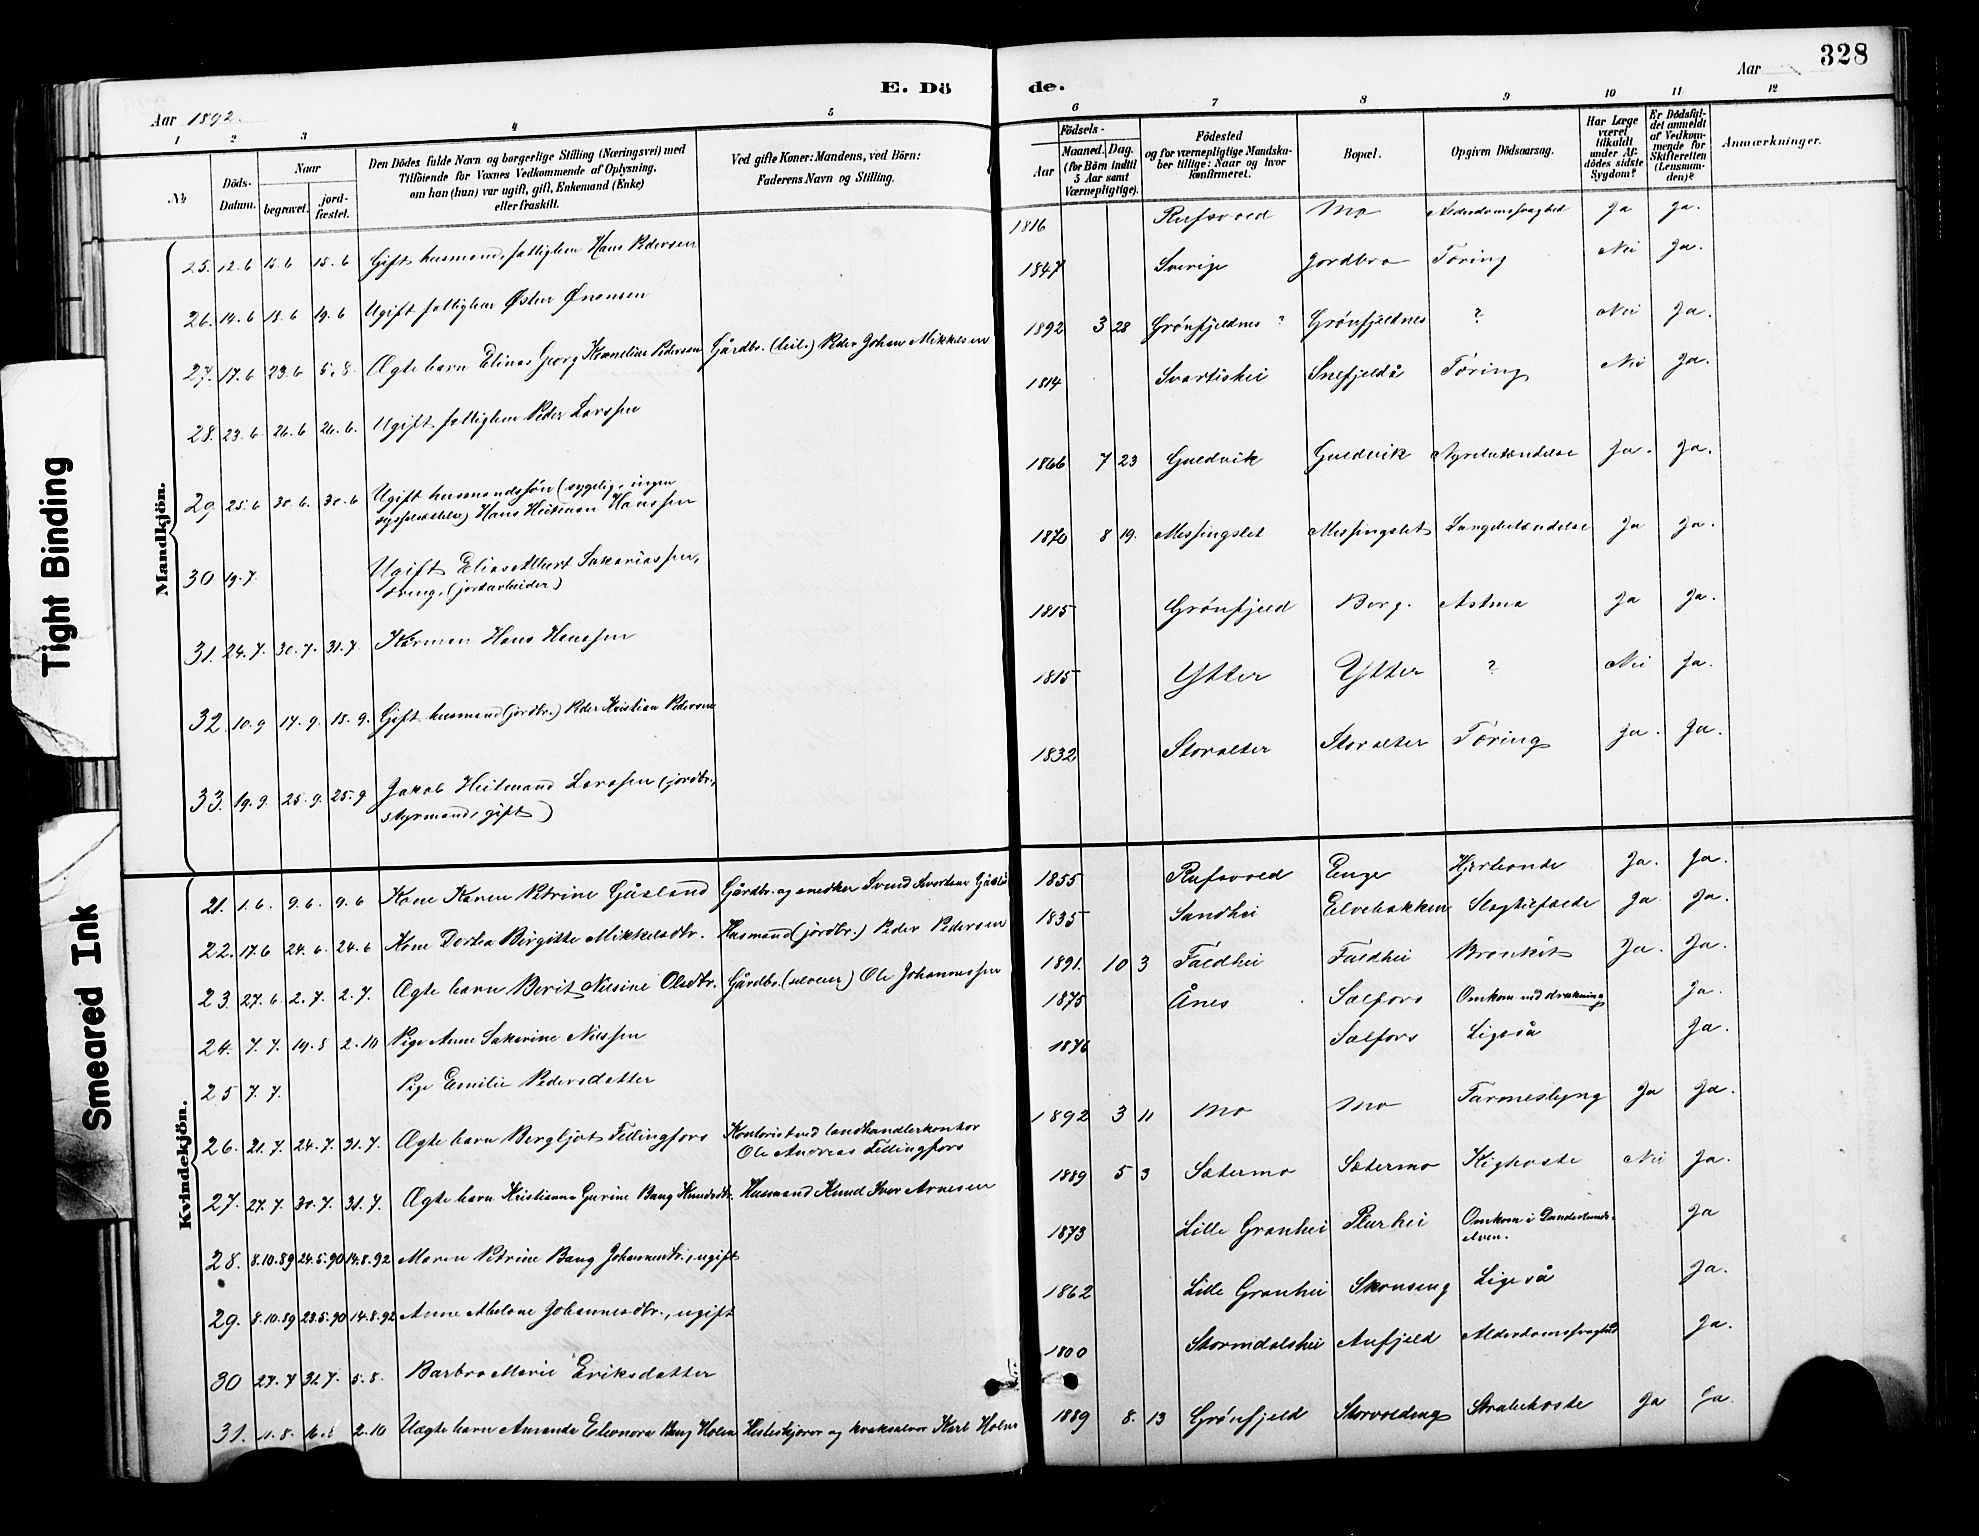 328
E. Dö de.
Aar 1892.
Aar
1 2 3 4 5 6 7 8 9 10 11 12
№
Döds-Datum.
Naar
begravet.
jordfæstet.
Den Dödes fulde Navn og borgerlige Stilling (Næringsvei) med
Tilföiende for Voxnes Vedkommende af Oplysning,
om han (hun) var ugift, gift, Enkemand (Enke)
eller fraskilt.
Ved gifte Koner: Mandens, ved Börn:
Faderens Navn og Stilling.
Födsels-
Aar
Maaned. Dag.
(for Börn indtil 5 Aar samt Værnepligtige).
Födested
og for værnepligtige Mandskaber tillige: Naar og hvor konfirmeret.
Bopæl.
Opgiven Dödsaarsag.
Har Læge været tilkaldt under Afdödes sidste Sygdom?
Er Dödsfaldet anmeldt af Vedkommende for Skifteretten (Lensmanden)?
Anmærkninger.
Mandkjön.
25. 12.6 15.6 15.6 Gift husmand, fattiglem Hans Pedersen 1816 Rufsvold Mo Alderdomssvaghed Ja Ja.
26. 14.6 18.6 19.6 Ugift fattiglem Østen Ønensen 1847 Sverige Jordbro Tæring Nei Ja.
27. 17.6 23.6 5.8. Ægte barn Elinas Georg Kornelius Pedersen Gårdbr. (leil.) Peder Johan Mikkelsen 1892 3 28 Grønfjeldnes ? Grønfjeldnes ? Nei Ja.
28. 23.6. 26.6 26.6. Ugift fattiglem Peder Larssen 1814 Svartishei Snefjeldå Tæring Nei Ja.
29. 25.6 30.6 30.6 Ugift husmandssøn (sygelig, ingen
sysselsættelse) Hans Heitman Hanssen 1866 7 23 Guldvik Guldvik Nyrebetændelse Ja. Ja.
30 19.7. Ugift Elias Albert Sakariassen,
dreng, (jordarbeider) 1870 8 19. Messingslet Messingslet Lungebetændelse Ja Ja.
31. 24.7. 30.7. 31.7. Kårmon Hans Hanssen 1815 Grønfjeld Borg. Astma Ja Ja.
32. 10.9 17.9. 18.9. Gift husmand (jordbr.) Peder Kristian Pedersen 1815 Ytter Ytter ? Nei Ja.
33. 19.9. 25.9. 25.9 Jakob Heitmand Larssen (jordbr.,
styrmand, gift) 1832 Storalter Storalter Tæring Ja. Ja.
Kvindekjön.
21. 1.6. 9.6. 9.6 Kone Karen Petrine Gåsland Gårdbr. og snedker Svend Svendsen 1855 Rufsvold Enge Hjerteonde Ja. Ja.
22. 17.6 24.6. 24.6 Kone Dortea Birgitte Mikkelsdtr. Husmand (jordbr.) Peder Pedersen 1835 Sandhei Elvebakken Slagtilfælde Ja Ja.
23. 27.6 2.7. 2.7. Ægte barn Berit Nilsine Olsdtr. Gårdbr. (selveier) Ole Johannessen 1891. 10 3 Faldhei Faldhei Bronkit Ja. Ja.
24. 7.7. 19.8 2.10 Pige Anne Sakarine Nilssen 1875 Ånes Selfors Omkom ved drukning Ja.
25 7.7. Pige Emilie Pedersdatter 1876 Selfors Ligeså Ja.
26. 21.7. 24.7. 31.7. Ægte barn Bergljot Fellingfors Kontorist ved landhandlerkontor
Ole Andreas Fellingfors 1892 3 11 Mo Mo Tarmeslyng Ja Ja.
27. 27.7. 30.7. 31.7. Ægte barn Kristianna Gurine Bang Knudsdtr. Husmand Knud Iver Arnesen 1889 5 3 Sætermo Sætermo Kighoste Nei Ja.
28. 8.10.89 24.5.90 14.8.92 Maren Petrine Bang Johannesdtr., ugift 1873 Lille Granhei Plurhei Omkom i Dunderlands-
elven. Ja
29. 8.10.89 23.5.90 14.8.92 Anne Abelone Johannesdtr., ugift 1862 Lille Granhei Skonseng Ligeså Ja.
30 27.7 31.7. 5.8. Barbro Marie Eriksdatter 1800 Stormdalshei Aufjeld Alderdomssvaghed Ja.
31. 11.8. 16.8 2.10 Uægte barn Amanda Eleonora Bang Holm Hesteskjærer og kvaksalver Karl Holm 1889 8. 13 Grønfjeld Storvolding Strubehoste Ja Ja.
Tight Binding
Smeared Ink